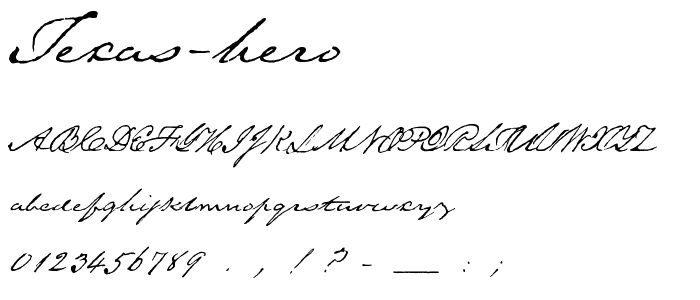 Texas-hero
ABCDEFGHIJKLMNOPQRSTUVWXYZ
abcdefghijklmnopqrstuvwxyz
0123456789 . , ! ? - _ : ;